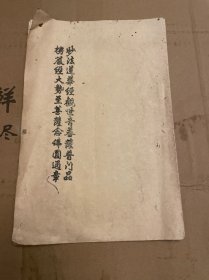 妙法蓮華經觀世音菩薩普門品
楞嚴經大勢至菩薩念佛圓通章
鲜
尽